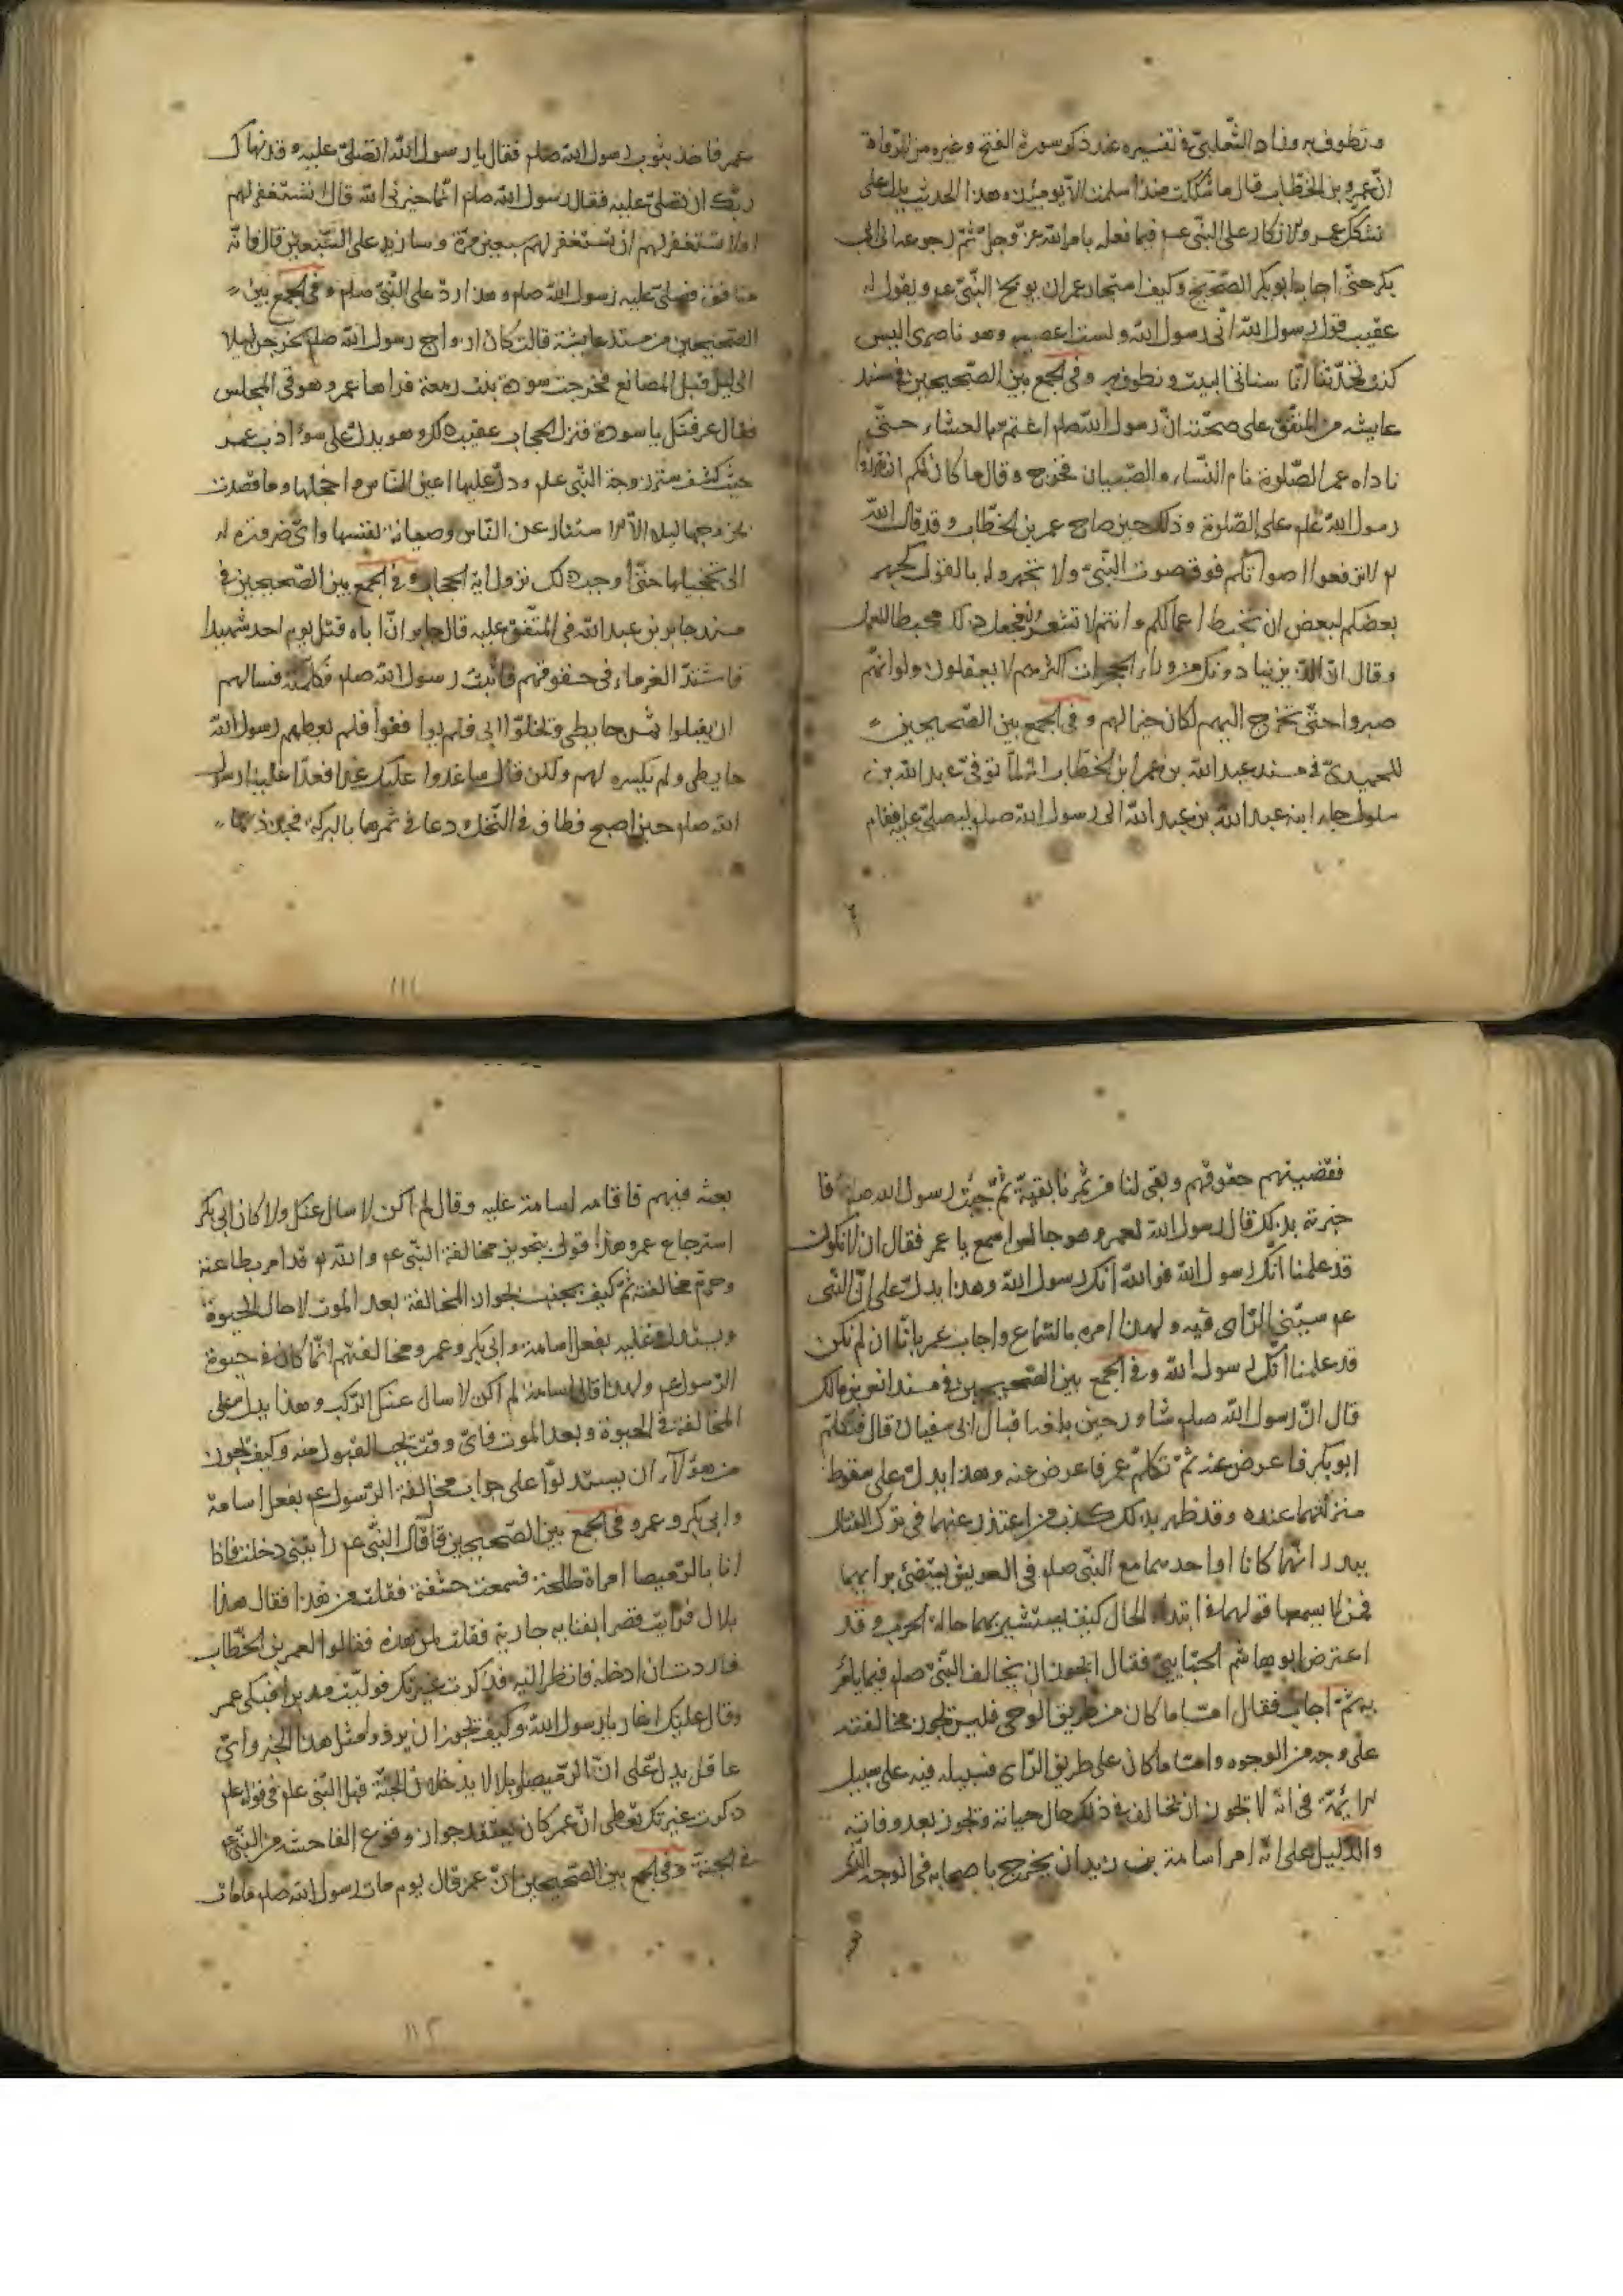 وتطوف به وزاد الثعلبي في تفسيره عند ذكر سورة الفتح وغيره من الرواة
ان عمر بن الخطاب قال ما شككت منذ اسلمت الا يومئذ وهذا الحديث يدل على
تشكك عمر والانكار على النبي عم فيما فعله بامر الله عز وجل ثم رجوعه الى ابي
بكر حتى اجابه ابو بكر الصحيح وكيف استجاز عمر ان يوبخ النبي عم ويقول له
عقيب قوله رسول الله اني رسول الله ولست اعصيه وهو ناصري اليس
كنت تحدثنا انا سناتي البيت ونطوف به وفي الجمع بين الصحيحين في مسند
عايشه من المتفق على صحته ان رسول الله صلم اعتم بالعشاء حتى
ناداه عمر الصلوة نام النساء والصبيان فخرج وقال ما كان لكم ان تنزروا
رسول الله علم على الصلوة وذلك حين صاح عمر بن الخطاب وقد قال الله
لا ترفعوا اصواتكم فوق صوت النبي ولا تجهروا له بالقول كجهر
بعضكم لبعض ان تحبط اعمالكم وانتم لا تشعرون فجعل ذلك محبطا للعمل
وقال ان الذين ينادونك من وراء الحجرات اكثرهم لا يعقلون ولو انهم
صبروا حتى تخرج اليهم لكان خيرا لهم وفي الجمع بين الصحيحين
للحميدي في مسند عبد الله بن عمر ابن الخطاب انه لما توفي عبد الله بن
سلول جاء ابنه عبد الله بن عبد الله الى رسول الله صلم ليصلي عليه فقام
عمر فاخذ بثوب رسول الله صلم فقال يا رسول الله اتصلي عليه وقد نهاك
ربك ان تصلي عليه فقال رسول الله صلم انما خيرني الله قال استغفر لهم
او لا تستغفر لهم ان تستغفر لهم سبعين مرة وسازيد على السبعين قال فانه
منافق فصلى عليه رسول الله صلم وهذا رد على النبي صلم وفي الجمع بين
الصحيحين من مسند عايشة قالت كان ازواج رسول الله صلم يخرجن ليلا
الى ليل قبل المصانع فخرجت سودة بنت زمعة فراها عمر وهو في المجلس
فقال عرفتك يا سودة فنزل الحجاب عقيب ذلك وهو يدل على سوء ادب عمر
حيث كشف ستر زوجة النبي علم ودل عليها اعين الناس واخجلها وما قصدت
بخروجها ليلا الا الاستتار عن الناس وصيانة لنفسها واي ضرورة له
الى تخجيلها حتى اوجب ذلك نزول اية الحجاب وفي الجمع بين الصحيحين في
مسند جابر بن عبد الله في المتفق عليه قال جابر ان اباه قتل يوم احد شهيدا
فاشتد الغرماء في حقوقهم فاتيت رسول الله صلم فكلمته فسالهم
ان يقبلوا ثمر حايطي ويحللوا ابي فلم يوا ففوا فلم يعطهم رسول الله
حايطي ولم يكسره لهم ولكن قال ساغدوا عليك غدا فغدا علينا رسول
الله صلم حين اصبح فطاف في النخل ودعا في ثمرها بالبركة فجذذتها
١١١
فقضيتهم حقوقهم وبقي لنا من ثمرنا بقية ثم جئت رسول الله صلم فا
خبرته بذلك قال رسول الله لعمر وهو جالس اسمع يا عمر فقال ان لا نكون
قد علمنا انك رسول الله فوالله انك رسول الله وهذا يدل على ان النبي
عم سيئ الراى فيه ولهذا امره بالسماع واجاب عمر بانا ان لم نكن
قد علمنا انك رسول الله وفي الجمع بين الصحيحين في مسند انس بن مالك
قال ان رسول الله صلم شاور حين بلغه اقبال ابي سفيان قال فتكلم
ابو بكر فاعرض عنه ثم تكلم عمر فاعرض عنه وهذا يدل على سقوط
منزلتهما عنده وقد ظهر بذلك كذب من اعتذر عنهما في ترك القتال
ببدر انهما كانا مع النبي صلم في العريش يستضئ برايهما
فمن لا يسمع قولهما في ابتداء الحال كيف يستشير بهما حالة الحرب وقد
اعترض ابو هاشم الجبايي فقال ايجوز ان يخالف النبي صلم فيما يامر
به ثم اجاب فقال اما ما كان من طريق الوحي فليس تجوز مخالفته
على وجه من الوجوه واما ما كان على طريق الراى فسبيله فيه على سبيل
الايمة في انه لا تجوز ان يخالف في ذلك حال حياته وتجوز بعد وفاته
والدليل على انه امر اسامة بن زيد ان يخرج باصحابه في الوجه الذي
بعثه فيهم فاقامه اسامة عليه وقال لم اكن لاسال عنك ولا كان ابي بكر
استرجاع عمر وهذا قول بتجويز مخالفة النبي عم والله قد امر بطاعته
وحرم مخالفته ثم كيف يجيب لجواز المخالفة بعد الموت لا حال الحيوة
ويستدل عليه بفعل اسامة وابي بكر وعمر ومخالفتهم انما كان في حيوة
الرسول عم ولهذا قال اسامة لم اكن لاسال عنك الركب وهذا يدل على
المخالفة في الحيوة وبعد الموت فاي وقت تجب القبول منه وكيف تجوز
من هؤلاء ان يستدلوا على جواز مخالفة الرسول عم بفعل اسامة
وابي بكر وعمر وفي الجمع بين الصحيحين قال النبي عم رايتني دخلت فاذا
انا بالرميصا امراة طلحة فسمعت خشفة فقلت من هذا فقال هذا
بلال فرايت قصرا بفنايه جارية فقلت لمن هذه فقالوا لعمر بن الخطاب
فاردت ان ادخله فانظر اليه فذكرت غيرتك فوليت مدبرا فبكى عمر
وقال عليك اغار يا رسول الله وكيف تجوز ان يرووا مثل هذا الخبر واي
عاقل يدل على ان الرميصا وبلالا يدخلان الجنة قبل النبي علم في قوله علم
ذكرت غيرتك تعطى ان عمر كان يعتقد جواز وقوع الفاحشه من النبي عم
في الجنة وفي الجمع بين الصحيحين ان عمر قال يوم مات رسول الله صلم ما مات
١١٢